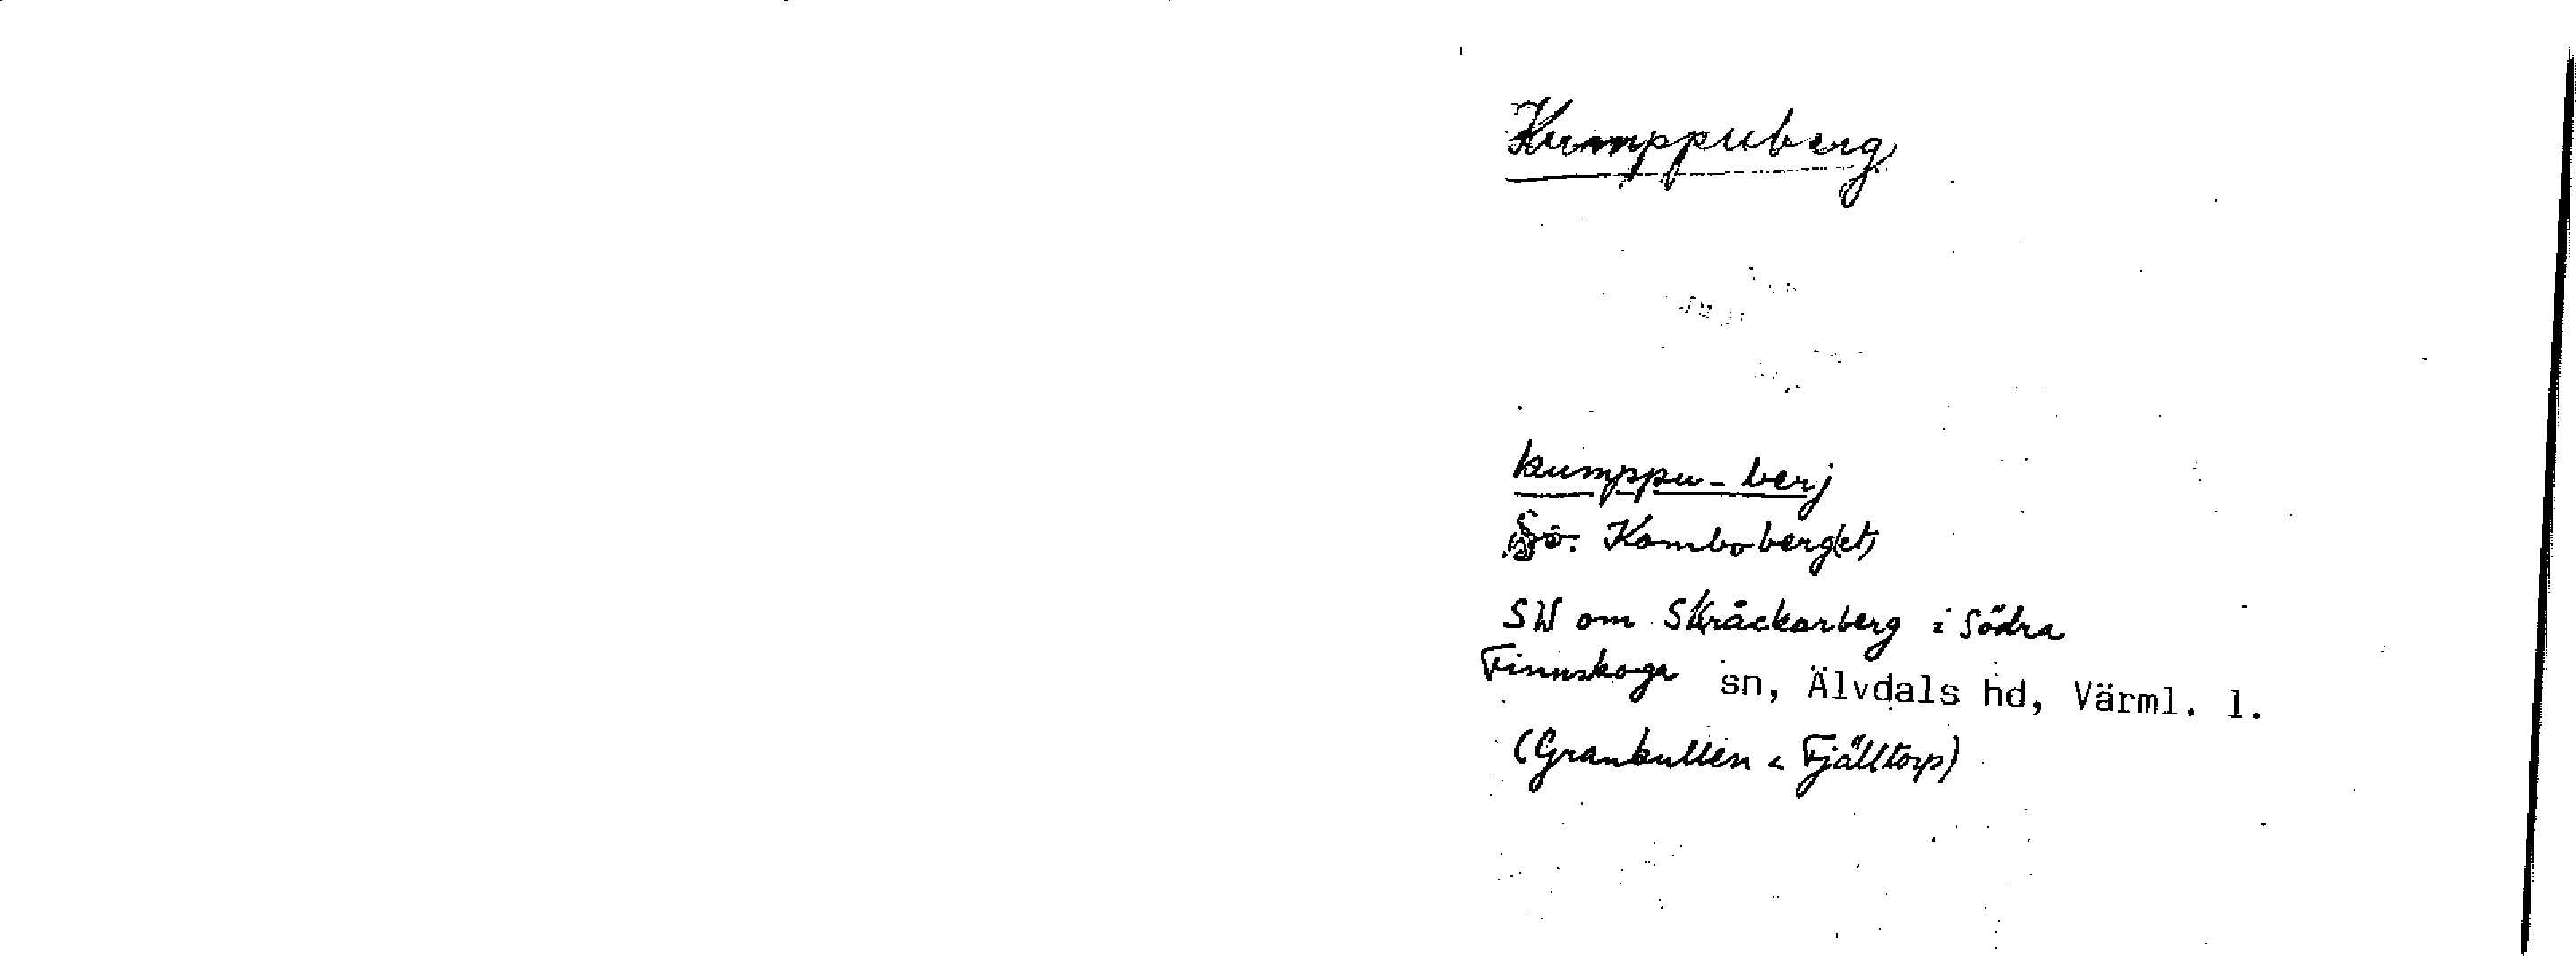 Kumppuberg
kumppu-berj
Komboberg(et)
SW om Skråckarberg i Södra
Finnskoga sn, Älvdals hd, Värml. l.
(Grankullen, Fjälltorp)